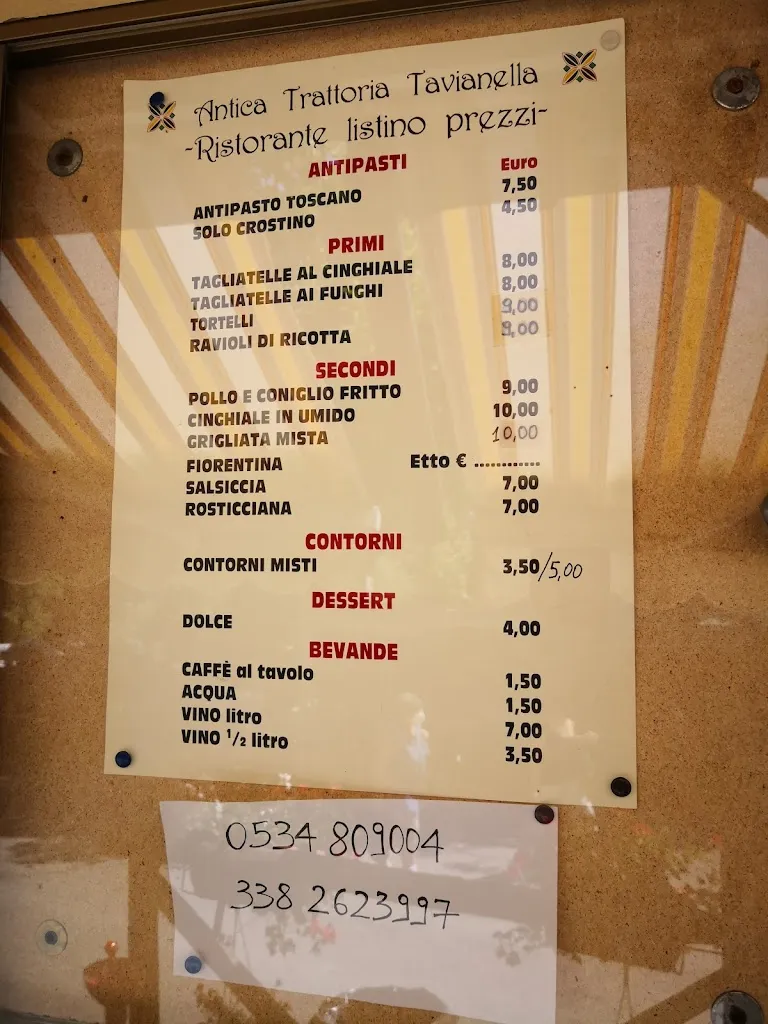 Antica Trattoria Tavianella
-Ristorante listino prezzi-
ANTIPASTI Euro
ANTIPASTO TOSCANO 7,50
SOLO CROSTINO 4,50
PRIMI
TAGLIATELLE AL CINGHIALE 8,00
TAGLIATELLE AI FUNGHI 8,00
TORTELLI 9,00
RAVIOLI DI RICOTTA 9,00
SECONDI
POLLO E CONIGLIO FRITTO 9,00
CINGHIALE IN UMIDO 10,00
GRIGLIATA MISTA 10,00
FIORENTINA Etto € ............
SALSICCIA 7,00
ROSTICCIANA 7,00
CONTORNI
CONTORNI MISTI 3,50/5,00
DESSERT
DOLCE 4,00
BEVANDE
CAFFÈ al tavolo 1,50
ACQUA 1,50
VINO litro 7,00
VINO 1/2 litro 3,50
0534 809004
338 2623997